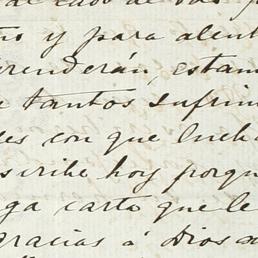 de cabo de dos
y para alent
prenderán, estam
tantos sufrim
es con que lucha
scribe hoy porqu
ga carta que le
gracias á Dios